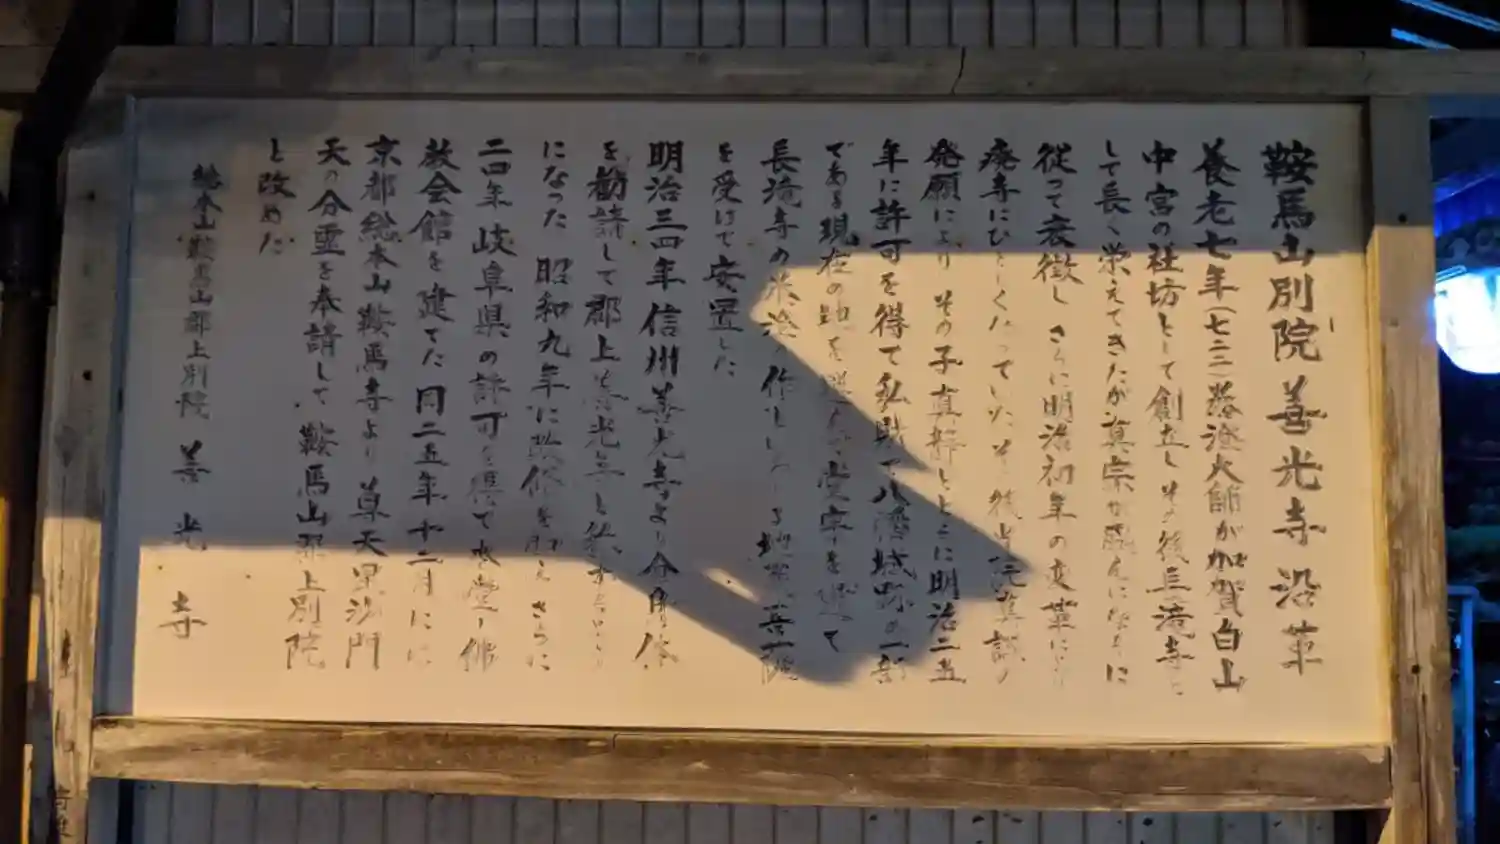 鞍馬山別院善光寺沿革
養老七年(七二三)泰澄大師が加賀白山
中宮の社坊として創立しその後長滝寺と
して長く栄えてきたが真宗が盛んになるに
従って衰微しさらに明治初年の変革により
廃寺にひとしくなっていたその後
発願によりその子真幹とともに明治二五
年に許可を得て私財で八幡城町の一部
である現在の地を選んで堂宇を建て
長滝寺の泰澄の作という地蔵菩薩
を受けて安置した
明治三四年信州善光寺より分身仏
を勧請して郡上善光寺と称する
になった 昭和九年に改修を加えさらに
二四年岐阜県の許可を得て本堂
教会館を建てた同二五年十二月に
京都総本山鞍馬寺より尊天毘沙門
天の分霊を奉請して鞍馬山郡上別院
と改めた
総本山鞍馬山郡上別院 善光寺